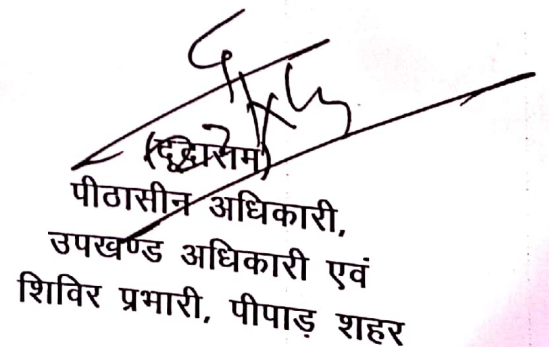 (दूद्दाराम)
पीठासीन अधिकारी,
उपखण्ड अधिकारी एवं
शिविर प्रभारी, पीपाड़ शहर